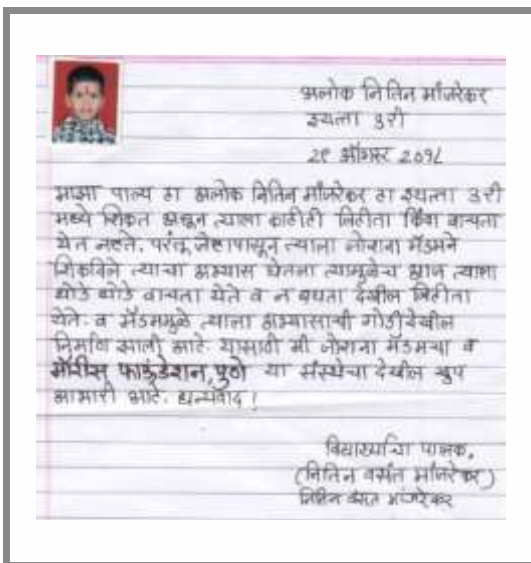 अलोक नितिन मांजरेकर
इयत्ता ३री
२९ ऑगस्ट २०१८
माझा पाल्य हा अलोक नितिन मांजरेकर हा इयत्ता ३री
मध्ये शिकत असून त्याला काहीही लिहीता किंवा वाचता
येत नव्हते. परंतू जेव्हापासून त्याला मॅडमने
शिकविले त्याचा अभ्यास घेतला त्यामुळेच आज त्याला
थोडे थोडे वाचता येते व न बघता देखील लिहीता
येते. व मॅडममुळे त्याला अभ्यासाची गोडीदेखील
निर्माण झाली आहे. यासाठी मी मॅडमचा व
मॉरीस फाऊंडेशन, पुणे या संस्थेचा देखील खुप
आभारी आहे. धन्यवाद !
विद्यार्थ्याचा पालक,
(नितिन वसंत मांजरेकर)
नितिन वसंत मांजरेकर